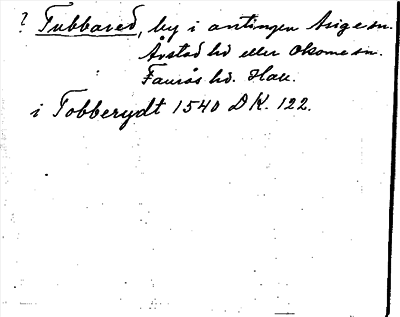 ? Tubbared, by i antingen Asige sn.
Årstad hd eller Okome sn.
Faurås hd. Hall.
i Tobberydt 1540 DK. 122.